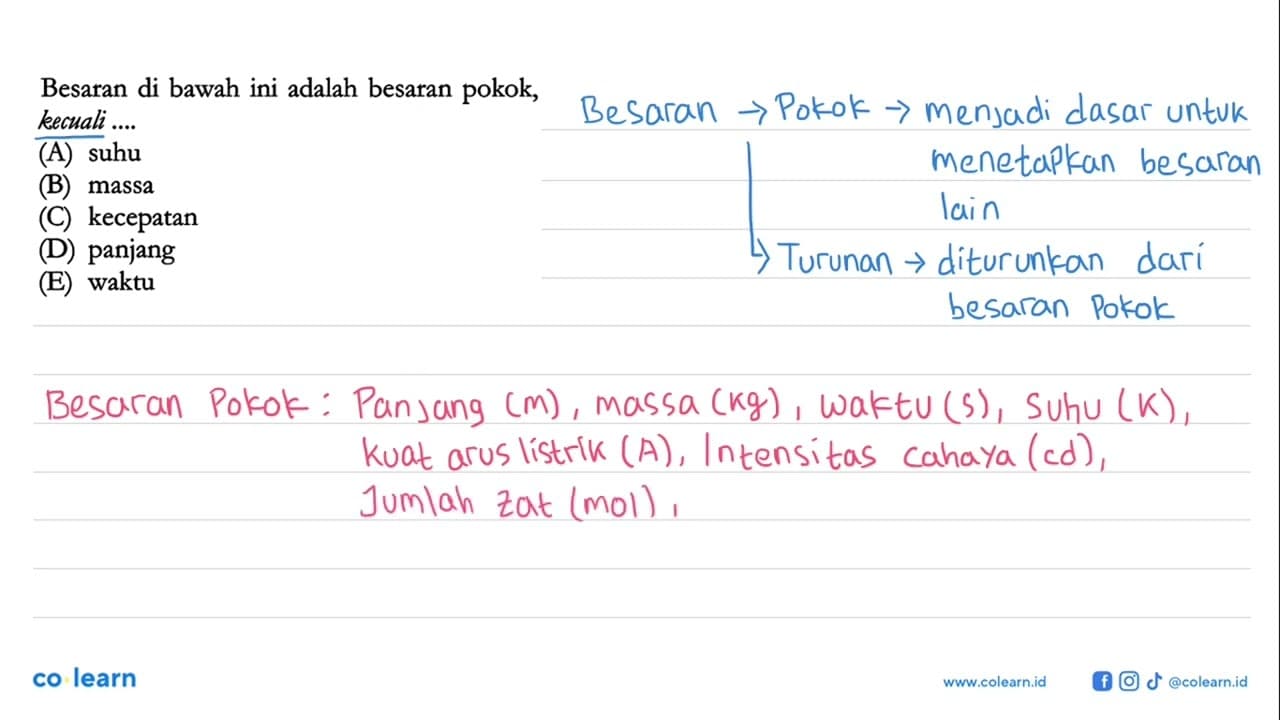 Besaran di bawah ini adalah besaran pokok,
kecuali ....
(A) suhu
(B) massa
(C) kecepatan
(D) panjang
(E) waktu
Besaran → Pokok → menjadi dasar untuk
menetapkan besaran
lain
↳ Turunan → diturunkan dari
besaran Pokok
Besaran Pokok : Panjang (m), massa (kg), waktu (s), Suhu (K),
kuat arus listrik (A), Intensitas cahaya (cd),
Jumlah zat (mol),
co learn
www.colearn.id
@colearn.id